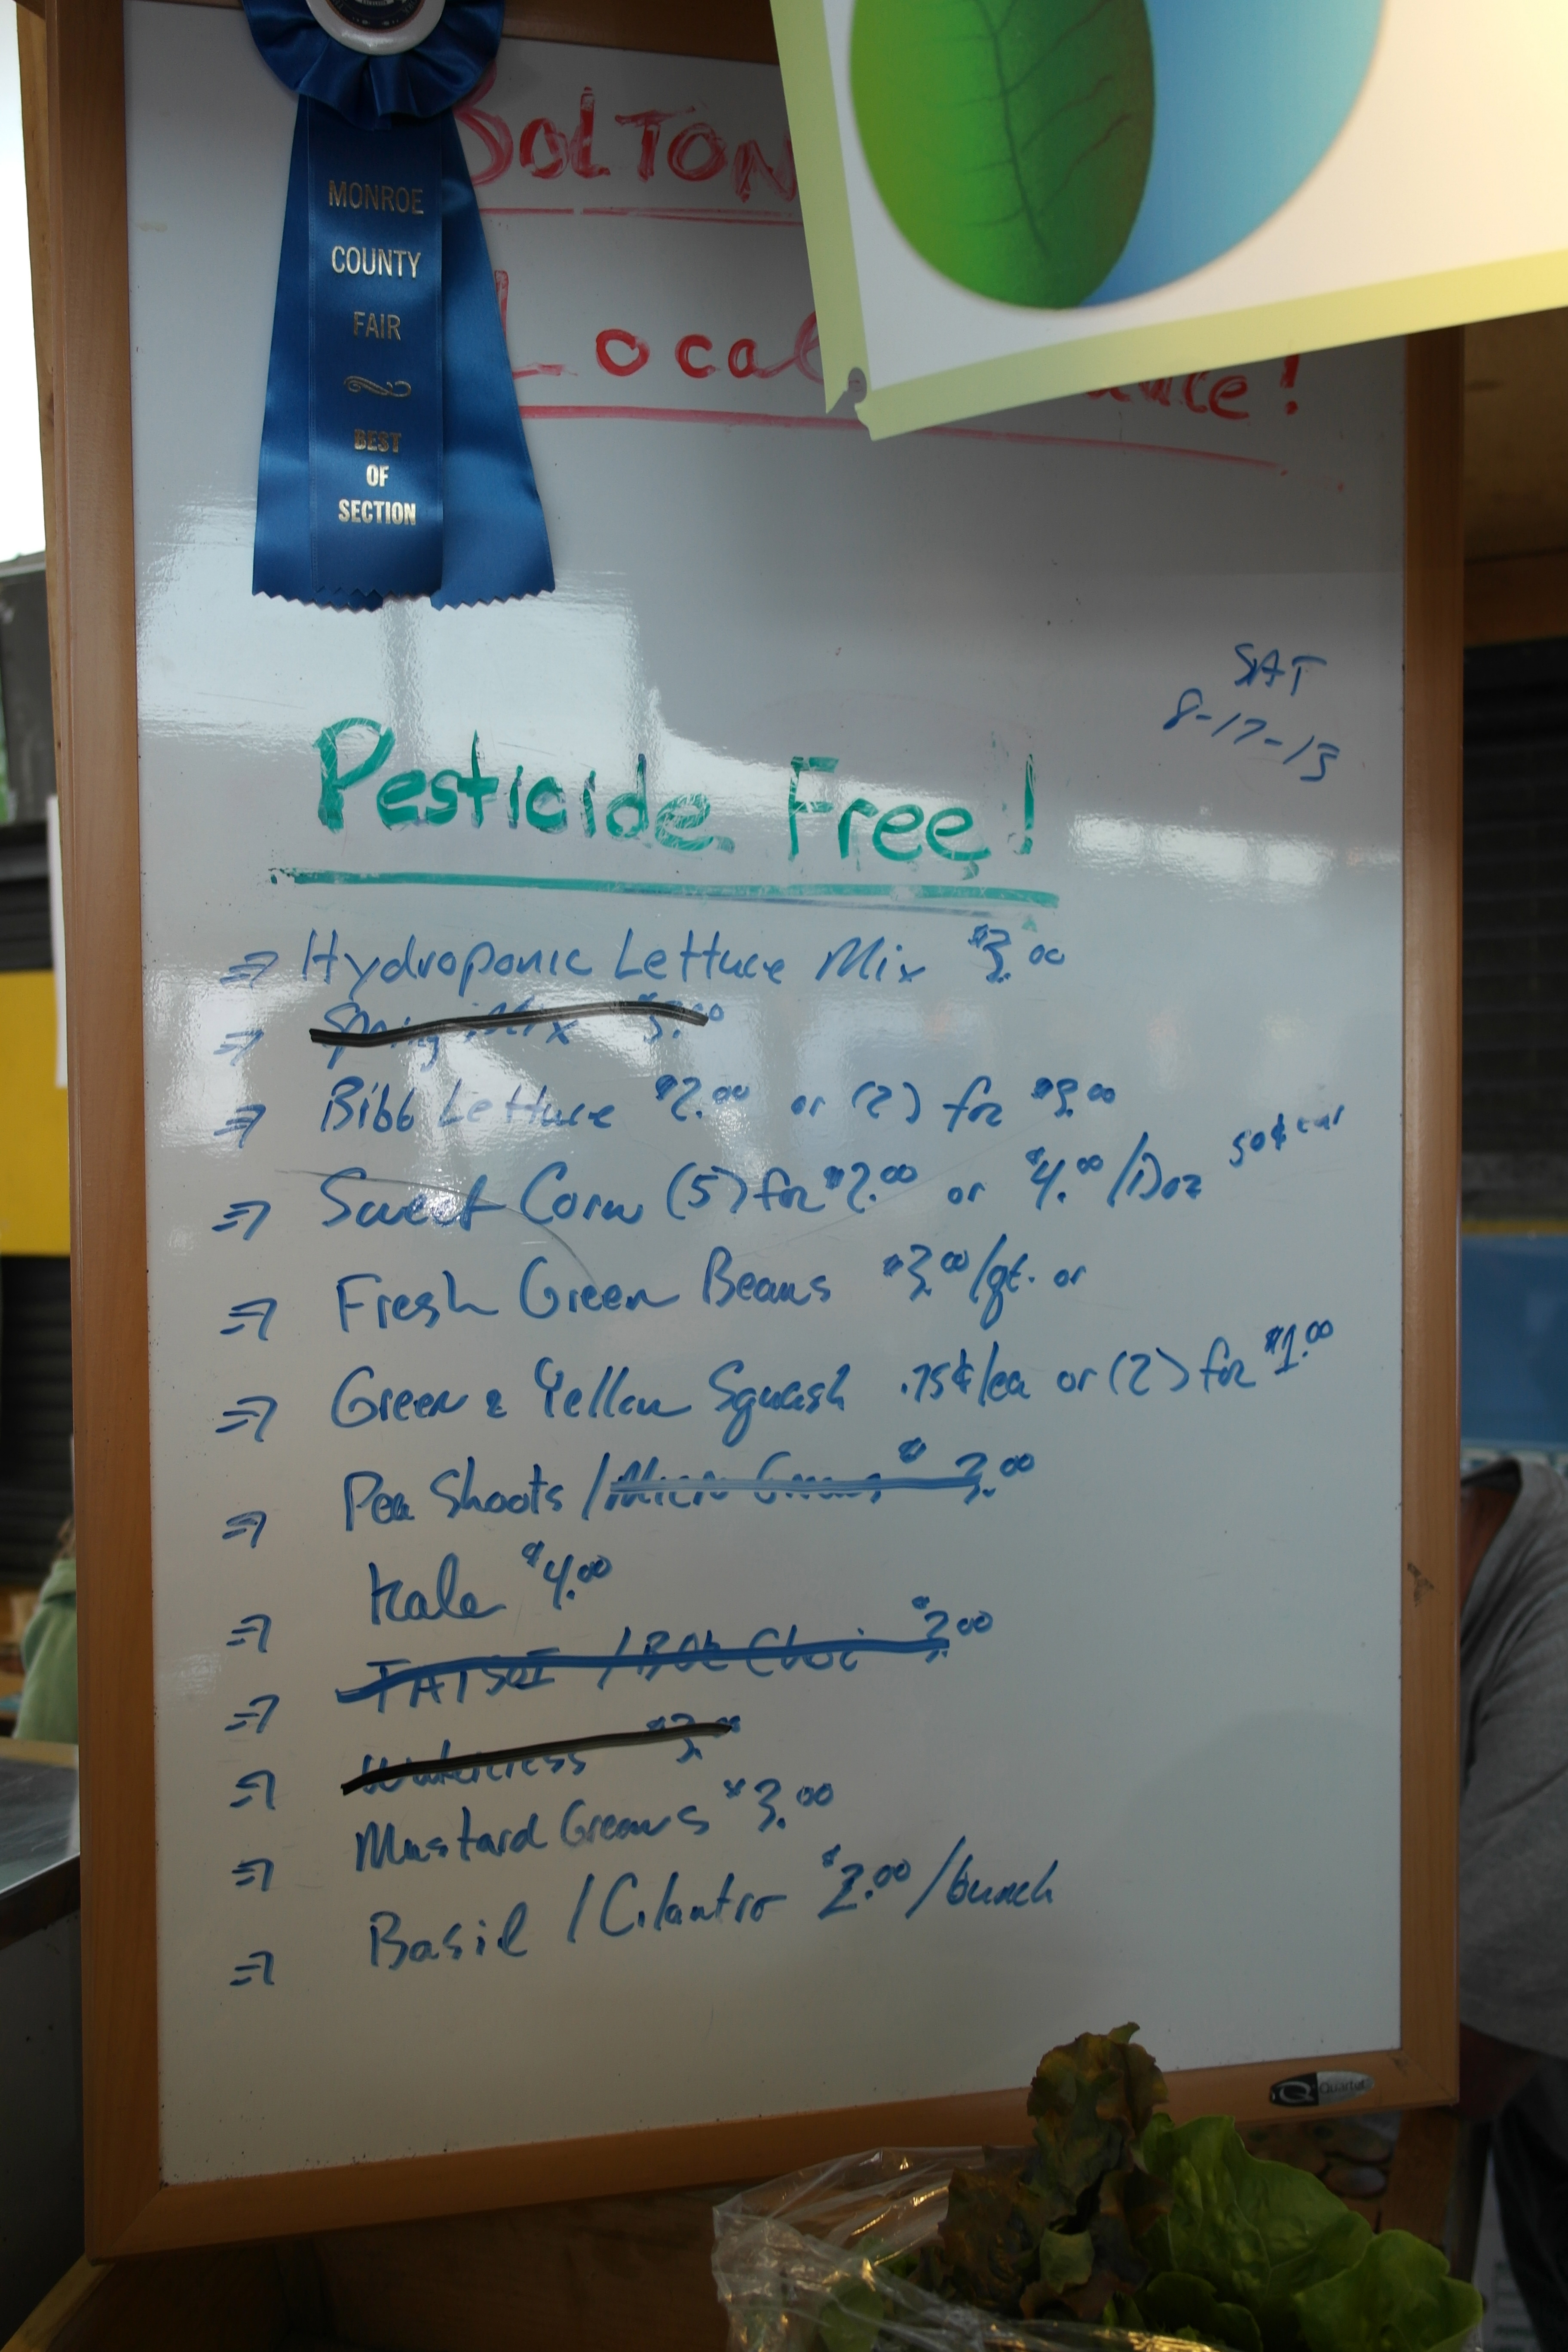 BOLTON
Local
MONROE
COUNTY
FAIR
BEST
OF
SECTION
SAT
8-17-13
Pesticide Free!
⇒ Hydroponic Lettuce Mix $3.00
⇒ Spring Mix $3.00
⇒ Bibb Lettuce $2.00 or (2) for $3.00
⇒ Sweet Corn (5) for $2.00 or $4.00/Doz 50¢ ear
⇒ Fresh Green Beans $3.00/qt. or
⇒ Green & Yellow Squash .75¢/ea or (2) for $1.00
⇒ Pea Shoots / Micro Greens $3.00
⇒ Kale $4.00
⇒ TATSOI / Bok Choi $3.00
⇒ Watercress $3.00
⇒ Mustard Greens $3.00
⇒ Basil / Cilantro $2.00 /bunch
Quartet